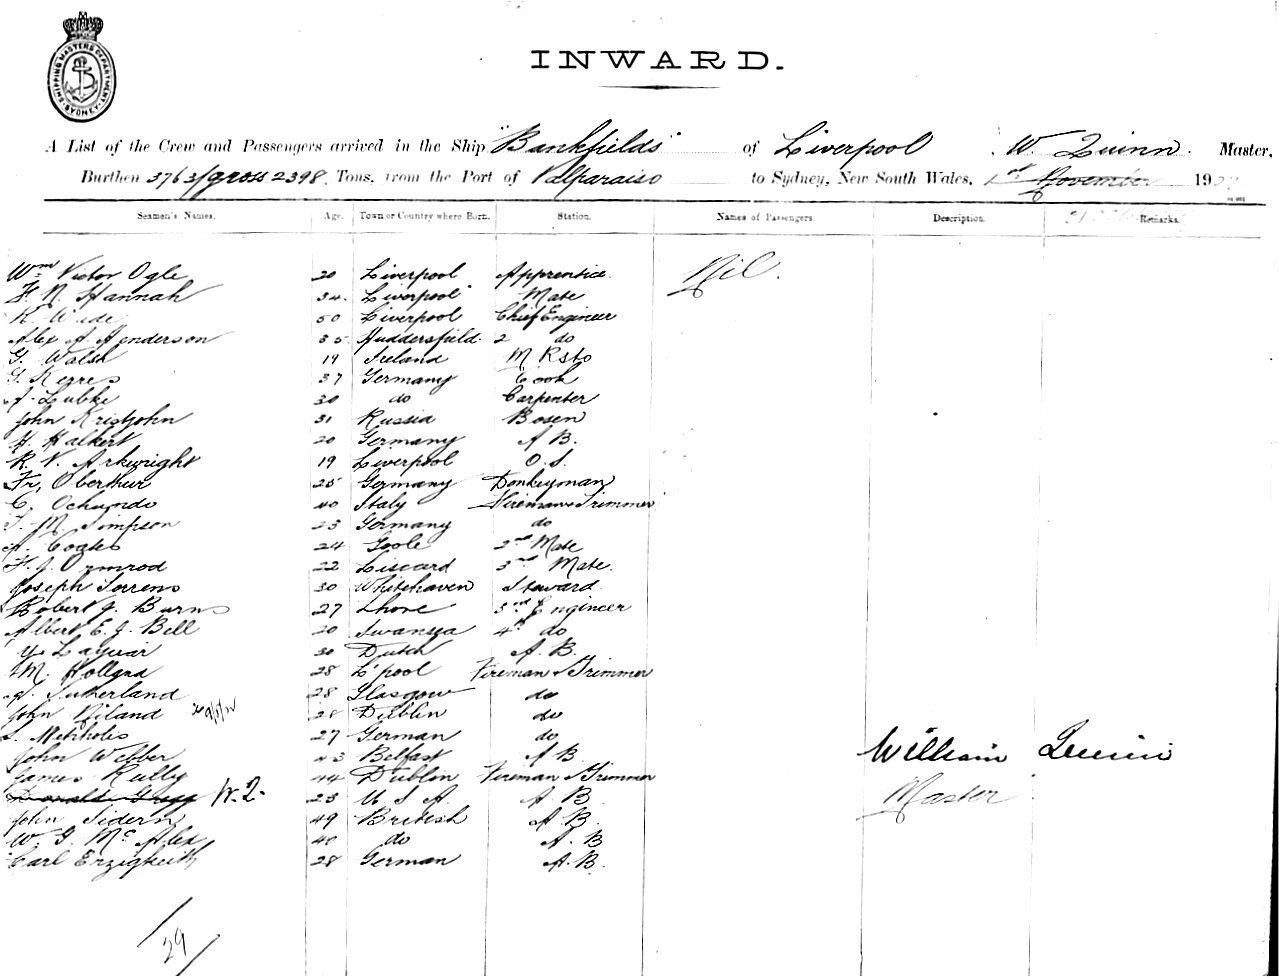 SHIPPING MASTERS DEPARTMENT SYDNEY
INWARD.
A List of the Crew and Passengers arrived in the Ship "Bankfields" of Liverpool, W. Quinn. Master,
Burthen 3763/gross 2398 Tons, from the Port of Valparaiso to Sydney, New South Wales, 1st November 190
Seamen's Names. Age. Town or Country where Born. Station. Names of Passengers. Description. Remarks.
Wm Victor Ogle 20 Liverpool Apprentice. Nil.
F. N. Hannah 34. Liverpool Mate
K. Wide 50 Liverpool Chief Engineer
Alex A Henderson 35 Huddersfield. 2 do
G. Walsh 19 Ireland M R Sto
G. Kerres 37 Germany Cook
A. Lubke 30 do Carpenter
John Kristjohn 31 Russia Bosen
H. Halkert 20 Germany A B.
R. V. Arkwright 19 Liverpool O. S.
Fr, Oberthur 25 Germany Donkeyman
C. 40 Italy Fireman & Trimmer
T. M. Simpson 23 Germany do
Coates 24 Goole 2nd Mate
F. J. Ormrod 22 Liscard 3rd Mate.
Joseph Torrens 30 Whitehaven Steward
Robert J. Burns 27 3rd Engineer
Albert E. J. Bell 20 Swansea 4th do
30 Dutch A. B.
M. 28 L'pool Fireman & Trimmer
Sutherland 28 Glasgow do
John 28 Dublin do
27 German do
John Webber 43 Belfast A B William Quinn
James 44 Dublin Fireman & Trimmer
Donald Gregg W. Q. 23 U S A. A. B. Master
John Sidern 49 British A. B.
W. G. Mc Alex 40 do A. B
Carl Erzigkeith 28 German A. B.
29